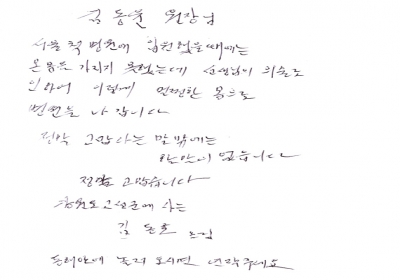 김동윤 원장님
서울 척 병원에 입원했을때에는
온몸을 가리지 못했는데 선생님의 의술로
인하여 이렇게 멀쩡한 몸으로
병원을 나갑니다
정말 고맙다는 말 밖에는
할말이 없습니다
정말 고맙습니다
강원도 고성군에 사는
김 드림
놀러오시면 연락주세요